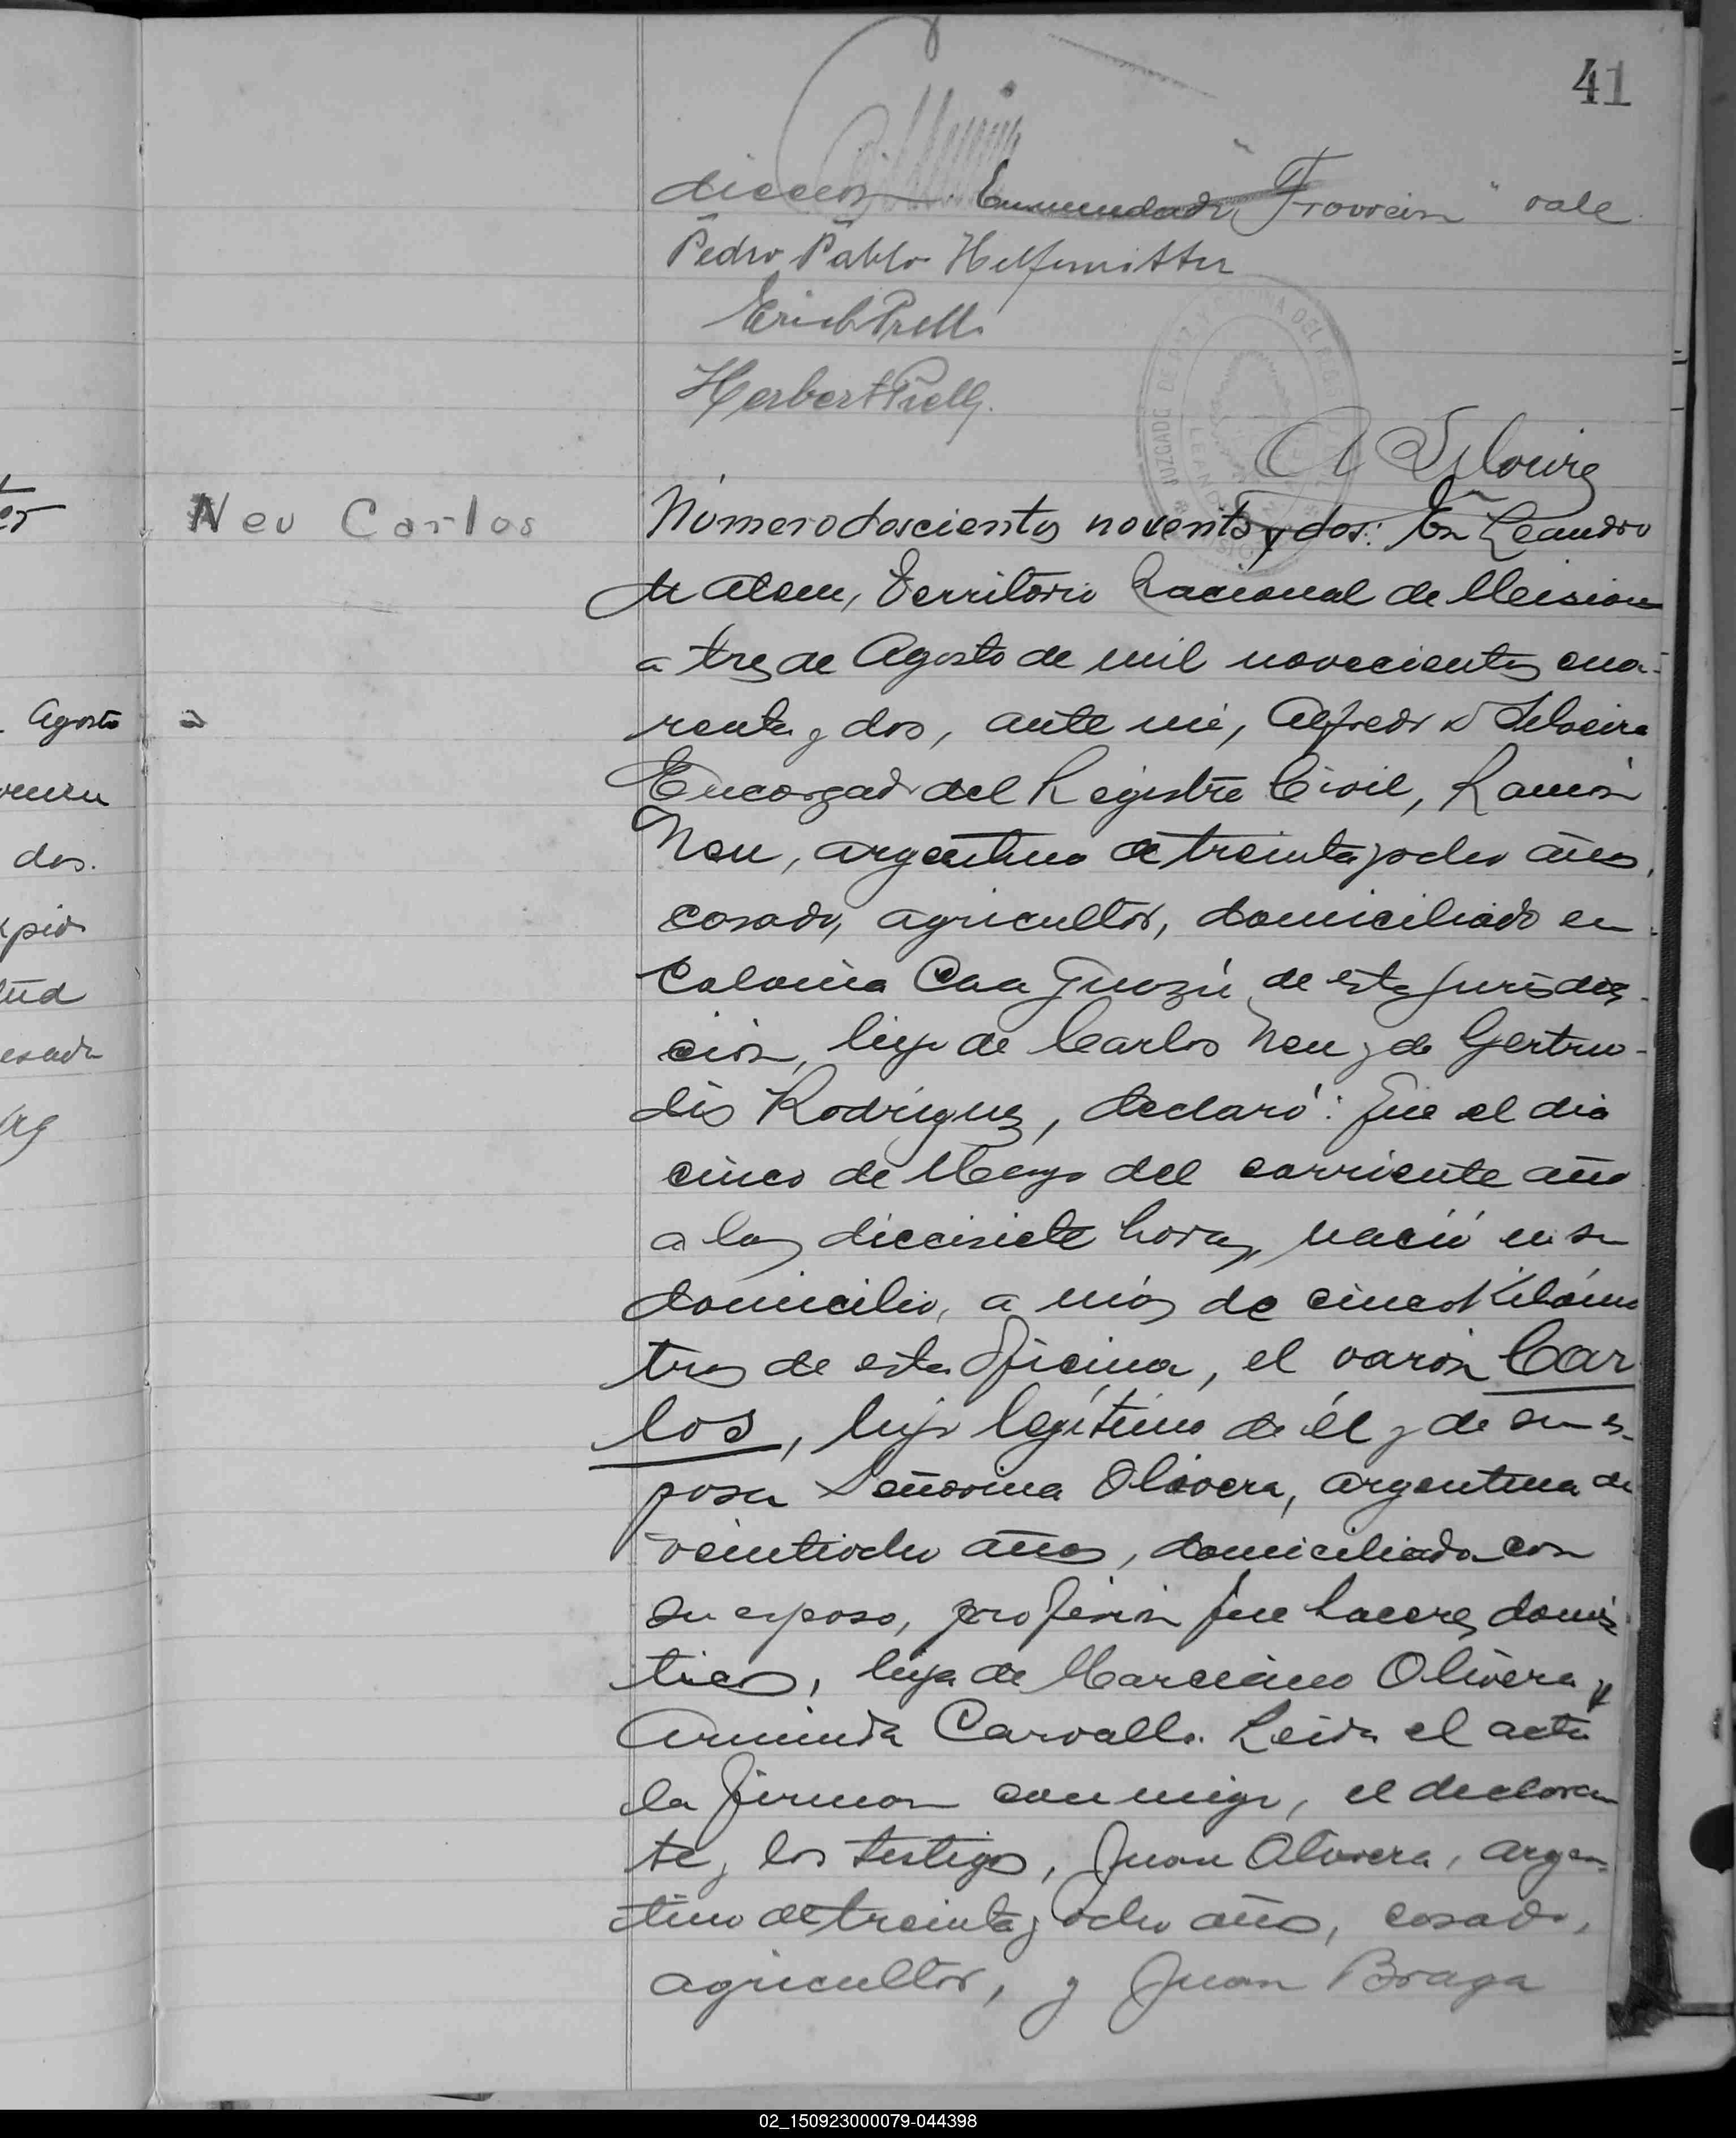 41
Enmendado "Francisco" vale
Pedro Pablo
Erich Prell
Herbert Prell
JUZGADO DE PAZ Y OFICINA DEL
A Silveira
Neu Carlos
Número doscientos noventa y dos: En Leandro
N Alem, Territorio Nacional de Misiones
a tres de Agosto de mil novecientos cua-
renta y dos, ante mi, Alfredo D Silveira
Encargado del Registro Civil, Ramón
Neu, argentino de treinta y ocho años,
casado, agricultor, domiciliado en
Colonia Caa Guazú de esta jurisdic-
ción, hijo de Carlos Neu y de Gertru-
dis Rodríguez, declaró: Que el dia
cinco de Mayo del corriente año
a las diecisiete horas, nació en su
domicilio, a más de cinco Kilóme
tros de esta Oficina, el varón Car
los, hijo legítimo de él y de su es-
posa Señorina Olivera, argentina de
veintiocho años, domiciliada con
su esposo, profesión que haceres domés
ticos, hija de Marciano Olivera y
Arminda Carvallo. Leida el acta
la firman conmigo, el declaran
te y los testigos, Juan Olivera, argen-
tino de treinta y ocho años, casado,
agricultor, y Juan Braga
Agosto
dos.
02_150923000079-044398